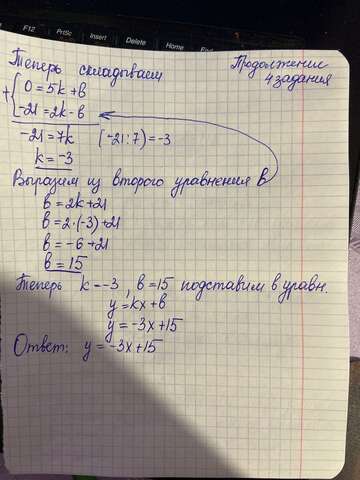 F12
PrtSc
Insert
Delete
Home
End
Теперь складываем
Продолжение
4 задания
+ { 0 = 5k + b
-21 = 2k - b
-21 = 7k (-21:7) = -3
k = -3
Выразим из второго уравнения b
b = 2k + 21
b = 2·(-3) + 21
b = -6 + 21
b = 15
Теперь k = -3, b = 15 подставим в уравн.
y = kx + b
y = -3x + 15
Ответ: y = -3x + 15